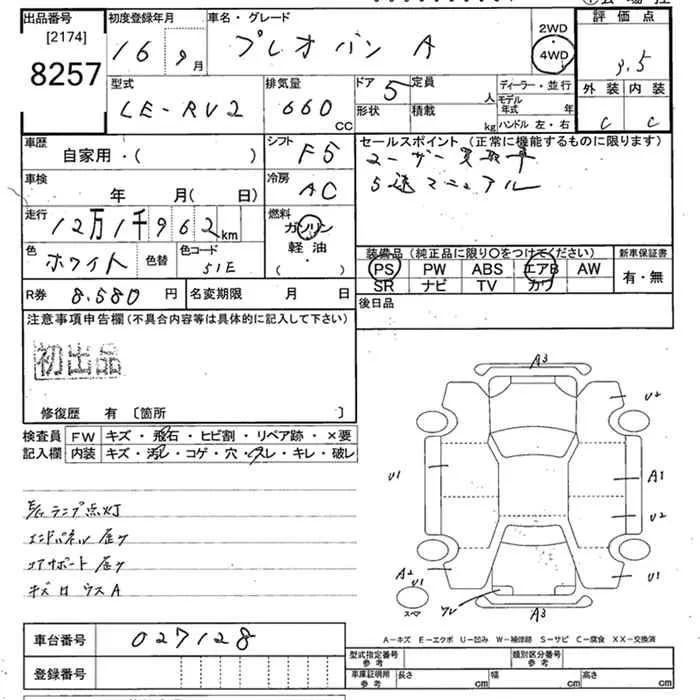 出品番号
[2174]
8257
初度登録年月
16 9月
車名・グレード
プレオバン A
2WD
4WD
評価点
3.5
外装 内装
C C
型式
LE-RV2
排気量
660 CC
ドア 5
定員 人
形状
積載 kg
ディーラー・並行
モデル年式 年
ハンドル 左・右
車歴
自家用・( )
シフト
F5
セールスポイント (正常に機能するものに限ります)
ユーザー買取車
5速マニュアル
車検
年 月( 日)
冷房
AC
走行
12万1千962km
燃料
ガソリン
軽油
( )
色
ホワイト
色替
色コード
51E
装備品(純正品に限り○をつけてください)
PS PW ABS エアB AW
SR ナビ TV カワ
新車保証書
有・無
R券 8.580円
名変期限 月 日
後日品
注意事項申告欄(不具合内容等は具体的に記入して下さい)
初出品
修復歴 有 〔箇所 〕
検査員記入欄
FW キズ・飛石・ヒビ割・リペア跡・×要
内装 キズ・汚レ・コゲ・穴・スレ・キレ・破レ
ランプ点灯
エンドパネル
コアサポート
キズ
A3
U2
U1
A1
U2
A2
U1
U1
スペア
A3
A-キズ E-エクボ U-凹み W-補修跡 S-サビ C-腐食 XX-交換済
車台番号
027128
登録番号
型式指定番号
参考
類別区分番号
参考
車庫証明用
参考
長さ cm
幅 cm
高さ cm